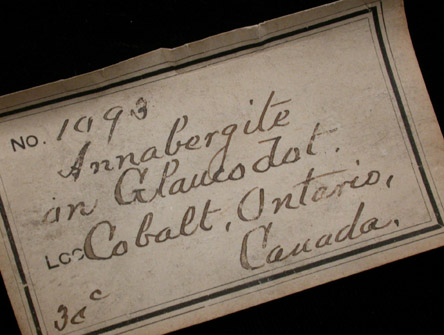 No. 1093
Annabergite
on Glaucodot.
Loc Cobalt, Ontario,
Canada.
30c